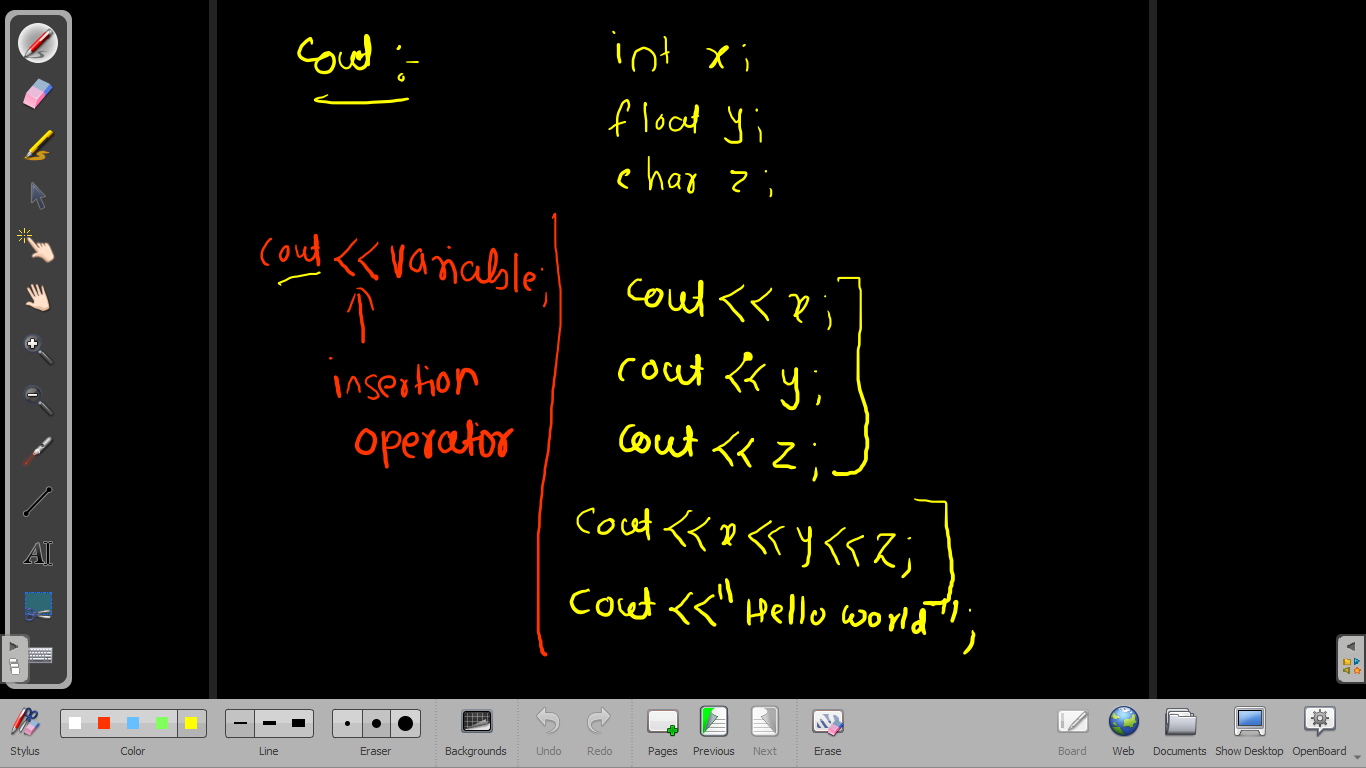 cout :-
int x;
float y;
char z;
cout << variable;
insertion
operator
cout << x;
cout << y;
cout << z;
cout << x << y << z;
cout << "Hello world";
AI
Stylus
Color
Line
Eraser
Backgrounds
Undo
Redo
Pages
Previous
Next
Erase
Board
Web
Documents
Show Desktop
OpenBoard